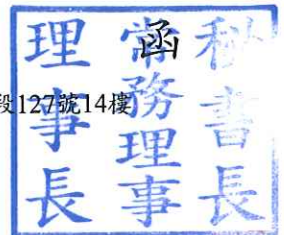 函
段127號14樓
秘書長
常務理事
理事長